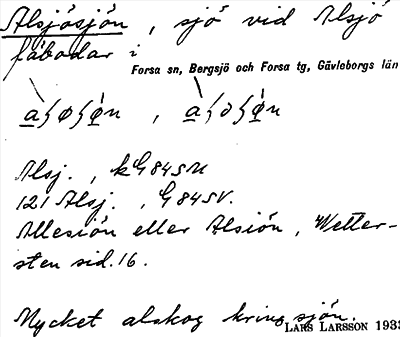 Alsjösjön, sjö vid Alsjö
fäbodar i
Forsa sn, Bergsjö och Forsa tg, Gävleborgs län
Alsj., kG845N
121 Alsj., G845V.
Allesiön eller Alsiön, Wetter-
sten sid. 16.
Mycket alskog kring sjön.
LARS LARSSON 1933